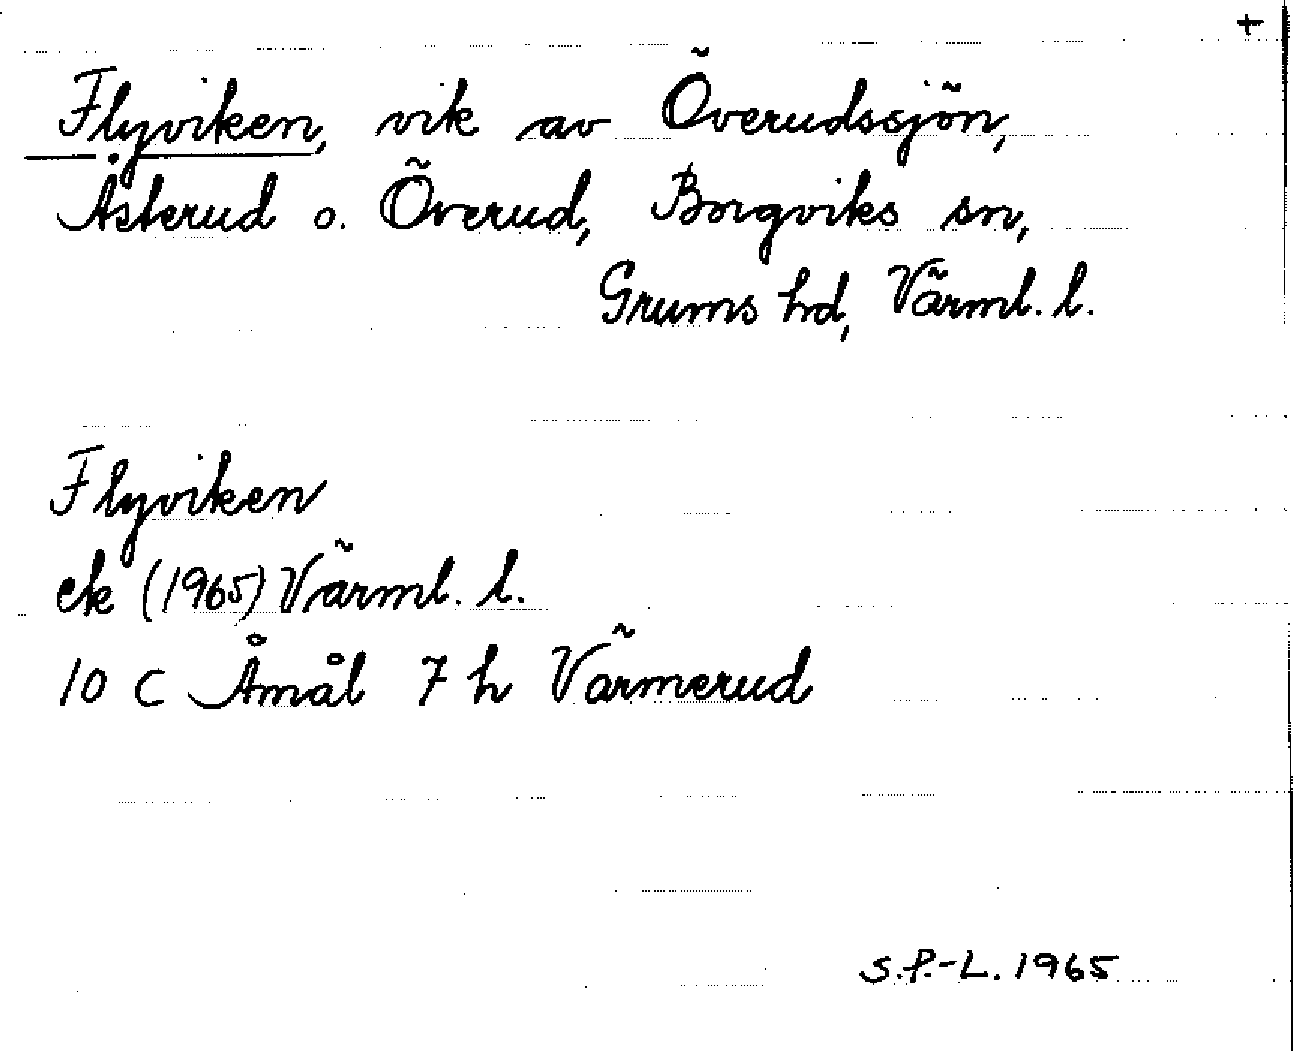 +
Flyviken, vik av Överudssjön,
Åsterud o. Överud, Borgviks sn,
Grums hd, Värml. l.
Flyviken
ek (1965) Värml. l.
10 C Åmål 7 h Värmerud
S.P.-L. 1965